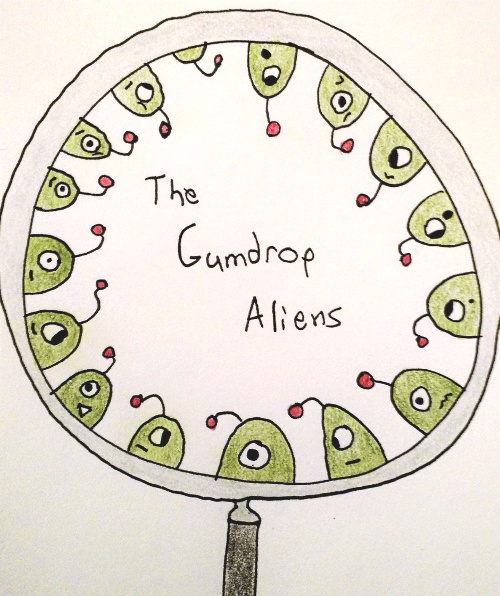 The
Gumdrop
Aliens